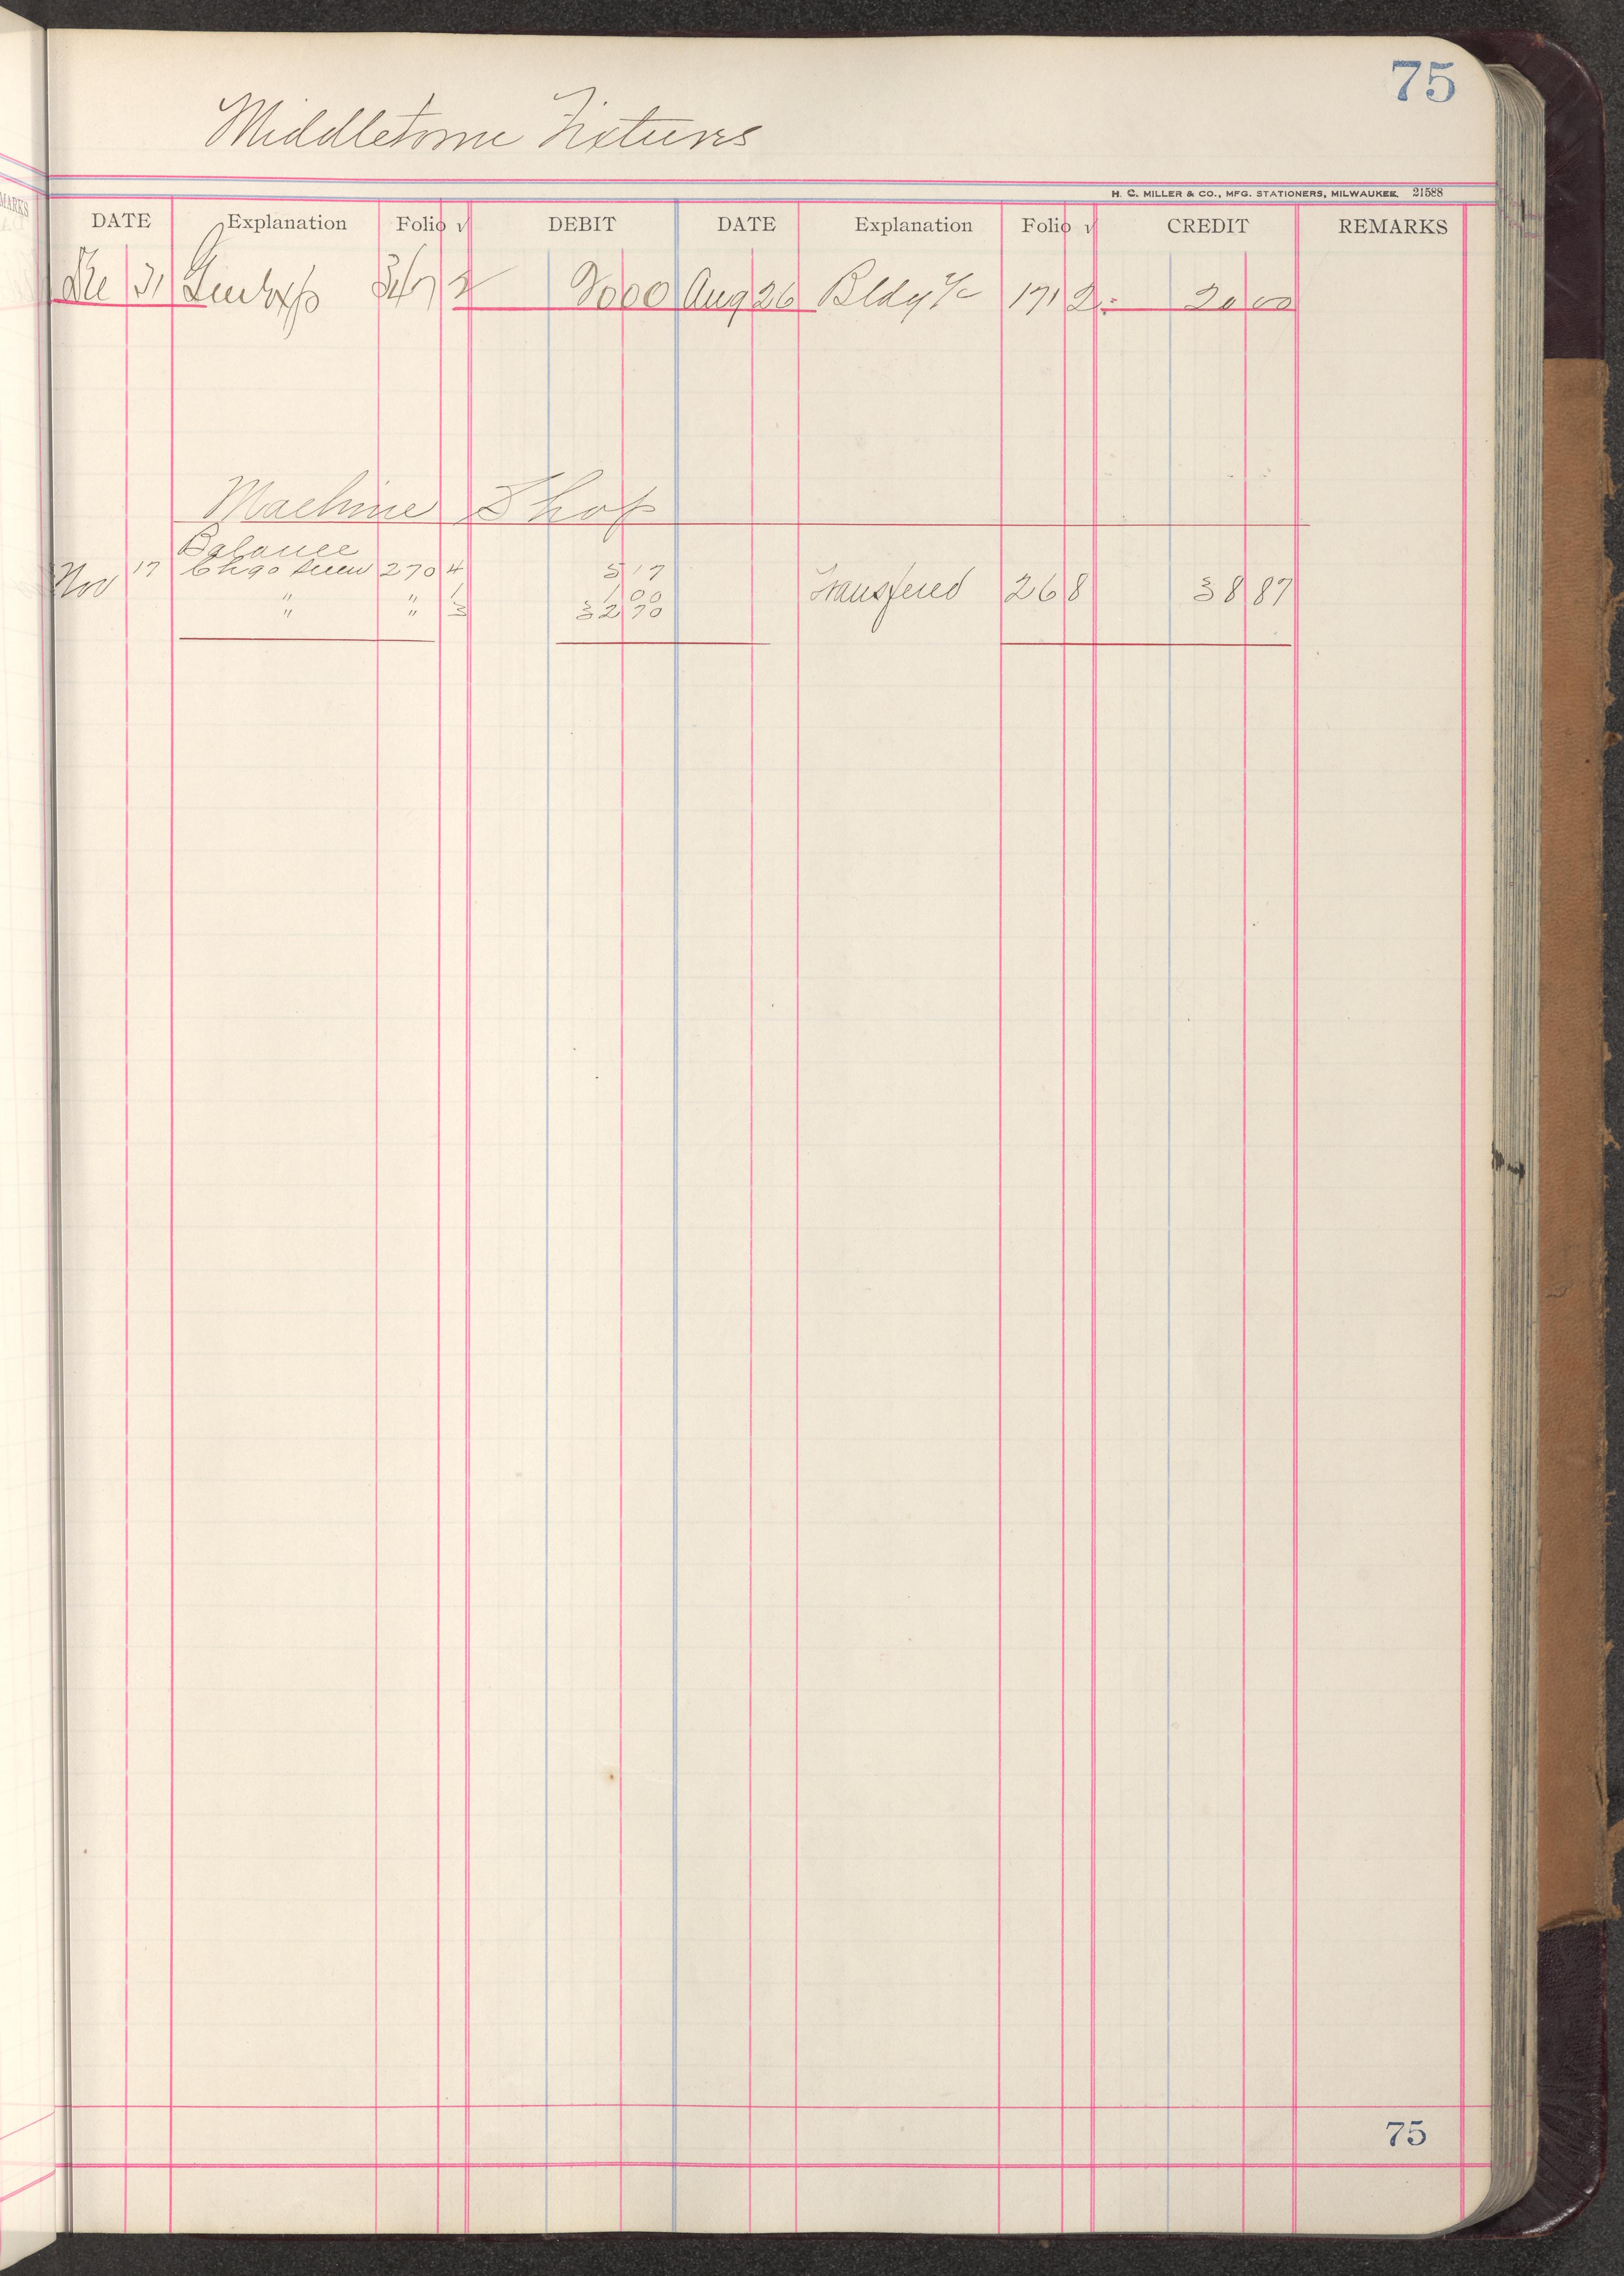 75
Middletown Fixtures
H. C. MILLER & CO., MFG. STATIONERS, MILWAUKEE 21588
DATE Explanation Folio √ DEBIT DATE Explanation Folio √ CREDIT REMARKS
Dec 31 Gen Exp 347 2 2000 Aug 26 Bldg a/c 171 2 20 00
Machine Shop
Balance
Nov 17 Chgo 270 4 5 17
" " 1 1 00 Transfered 268 38 87
" " 3 32 70
75